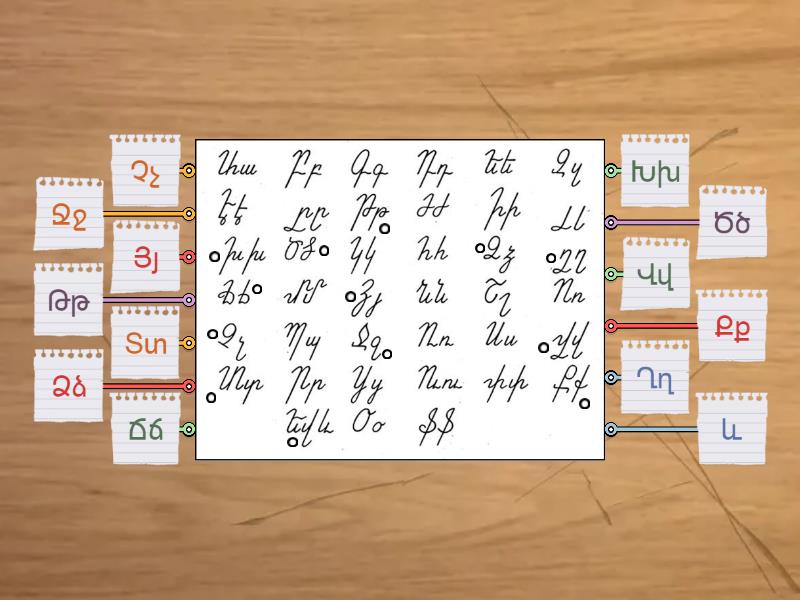 Չչ
Ջջ
Յյ
Թթ
Տտ
Ձձ
Ճճ
Աա Բբ Գգ Դդ Եե Զզ
Էէ Ըը Թթ Ժժ Իի Լլ
Խխ Ծծ Կկ Հհ Ձձ Ղղ
Ճճ Մմ Յյ Նն Շշ Ոո
Չչ Պպ Ջջ Ռռ Սս Վվ
Տտ Րր Ցց Ուու Փփ Քք
Եվև Օօ Ֆֆ
Խխ
Ծծ
Վվ
Քք
Ղղ
և